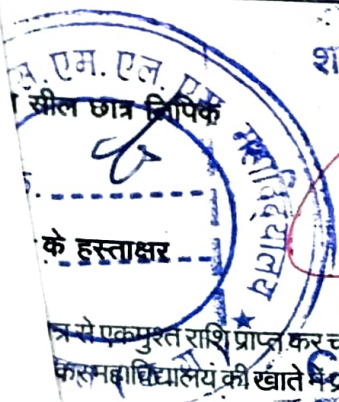 एम. एल. एस. महाविद्यालय
श
सील छात्र लिपिक
के हस्ताक्षर
त्र से एकमुश्त राशि प्राप्त कर
महाविद्यालय की खाते में